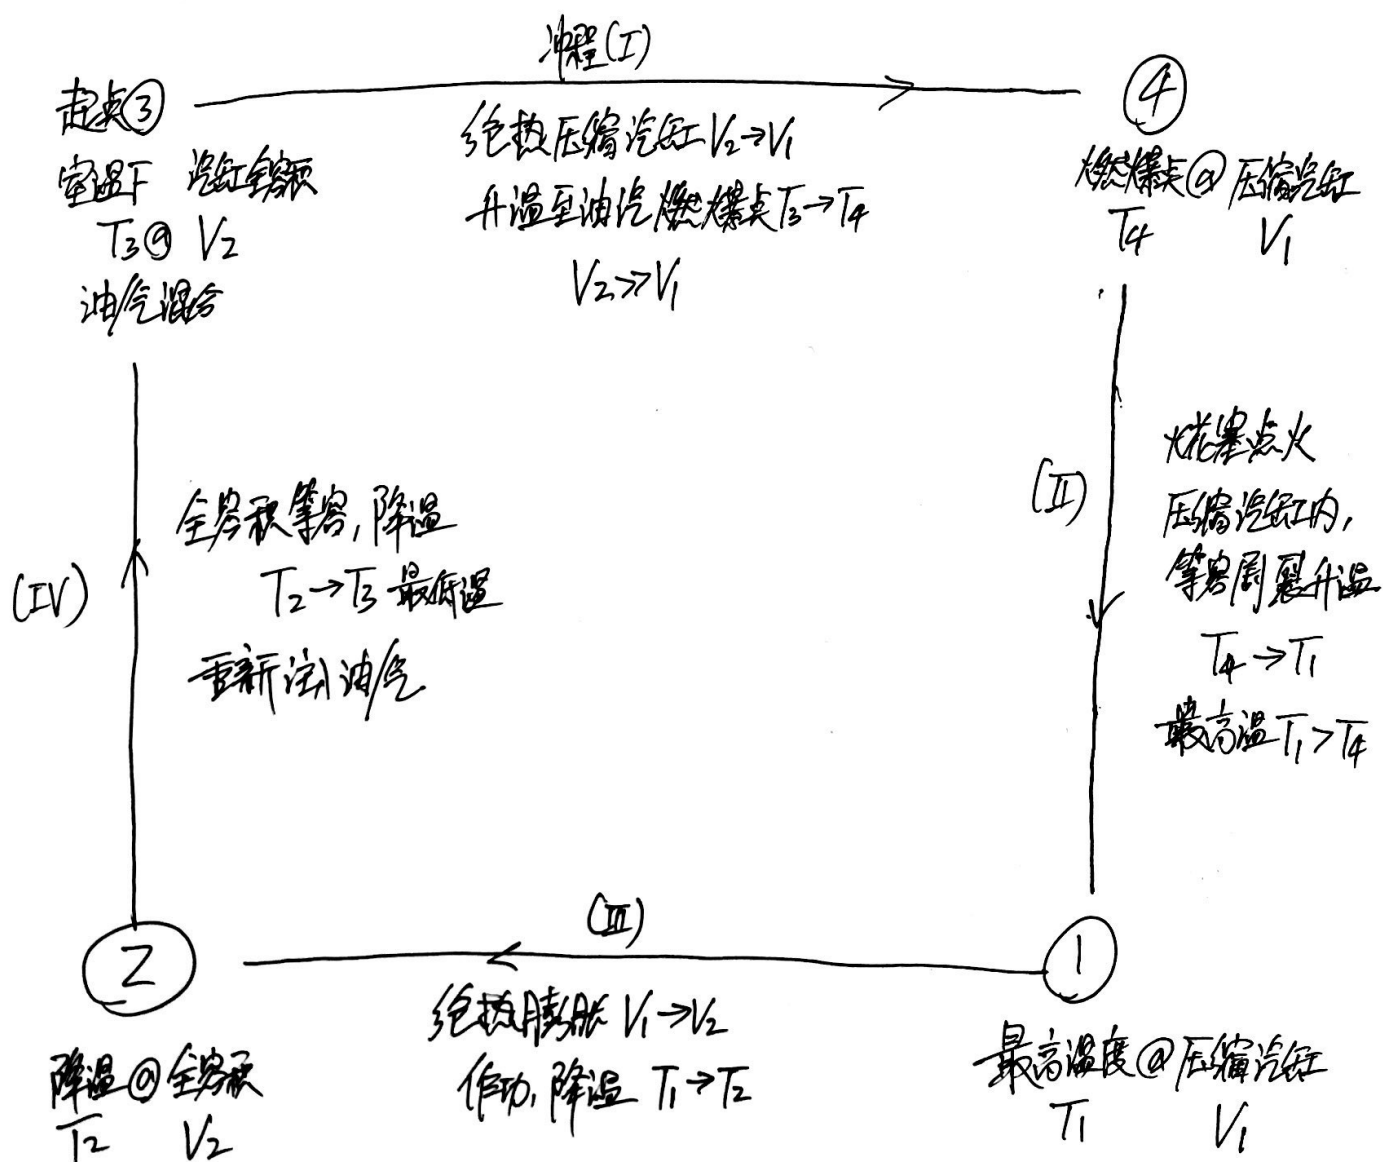 冲程(I)
起点③
室温下 汽缸全容积
T₃@ V₂
油/气混合
绝热压缩汽缸V₂→V₁
升温至油汽燃爆点T₃→T₄
V₂>>V₁
④
燃爆点@压缩汽缸
T₄ V₁
(II)
火花塞点火
压缩汽缸内,
等容剧烈升温
T₄→T₁
最高温T₁>T₄
(IV)
全容积等容,降温
T₂→T₃ 最低温
重新注入油/气
②
降温@全容积
T₂ V₂
(III)
绝热膨胀 V₁→V₂
作功,降温 T₁→T₂
①
最高温度@压缩汽缸
T₁ V₁